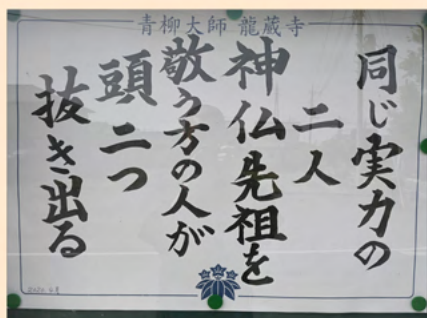 青柳大師 龍蔵寺
同じ実力の
二人
神仏先祖を
敬う方の人が
頭二つ
抜き出る